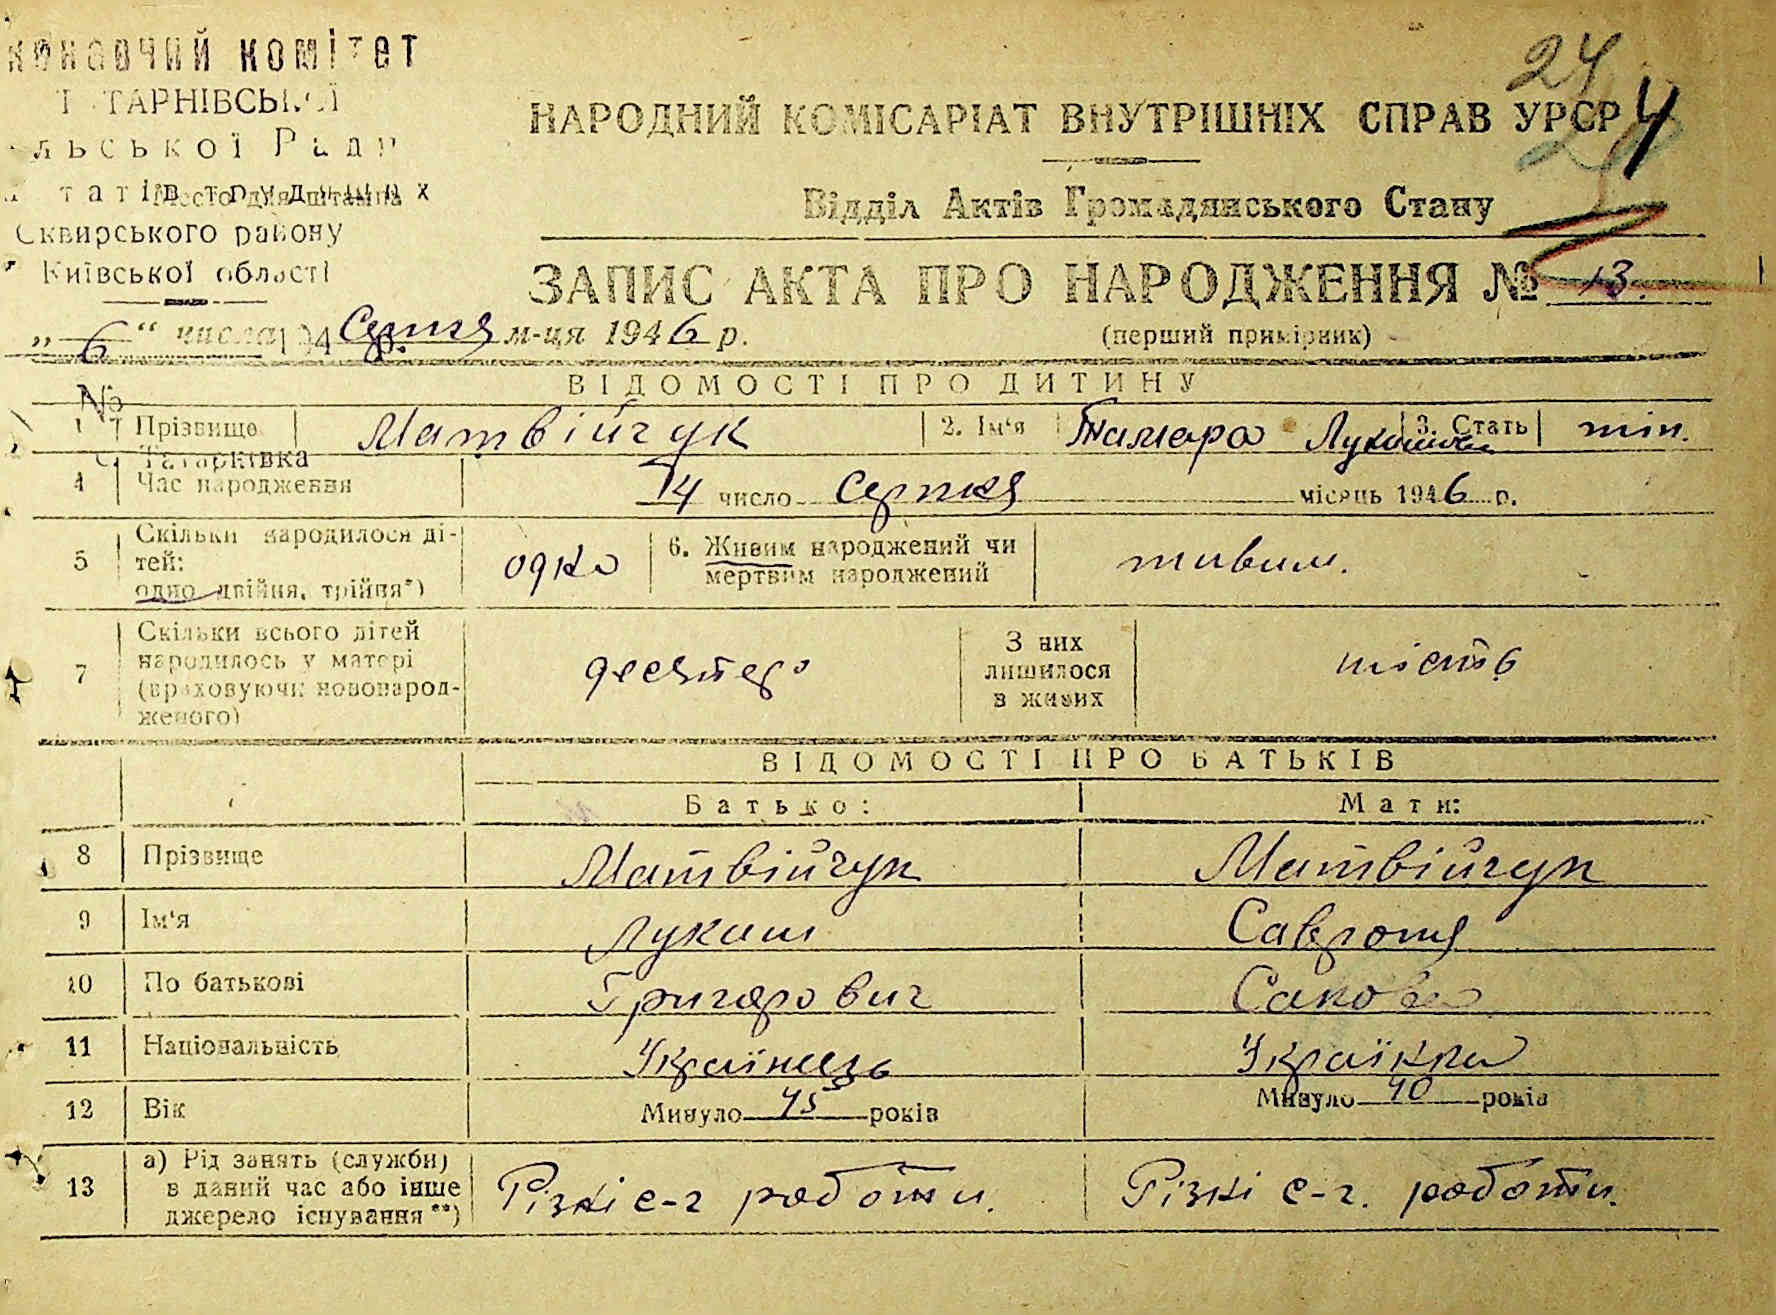 комітет
ТАРНІВСЬКОЇ
Ради
Сквирського району
Київської області
24
4
НАРОДНИЙ КОМІСАРІАТ ВНУТРІШНІХ СПРАВ УРСР
Відділ Актів Громадянського Стану
ЗАПИС АКТА ПРО НАРОДЖЕННЯ № 13.
„ 6 “ числа Серпня м-ця 1946 р.
(перший примірник)
ВІДОМОСТІ ПРО ДИТИНУ
№
1 Прізвище Матвійчук 2. Ім'я Тамара 3. Стать жін.
Татарківка
4 Час народження 14 число Серпня місяць 1946 р.
5 Скільки народилося ді-
тей:
одно двійня, трійня*)
одно
6. Живим народжений чи
мертвим народжений
живим.
7 Скільки всього дітей
народилось у матері
(враховуючи новонарод-
женого)
десятеро
З них
лишилося
в живих
шість
ВІДОМОСТІ ПРО БАТЬКІВ
Батько: Мати:
8 Прізвище Матвійчук Матвійчук
9 Ім'я Лукаш
10 По батькові Григорович
11 Національність Українець Українка
12 Вік Минуло 45 років Минуло 40 років
13 а) Рід занять (служби)
в даний час або інше
джерело існування**)
Різні с-г роботи. Різні с-г. роботи.